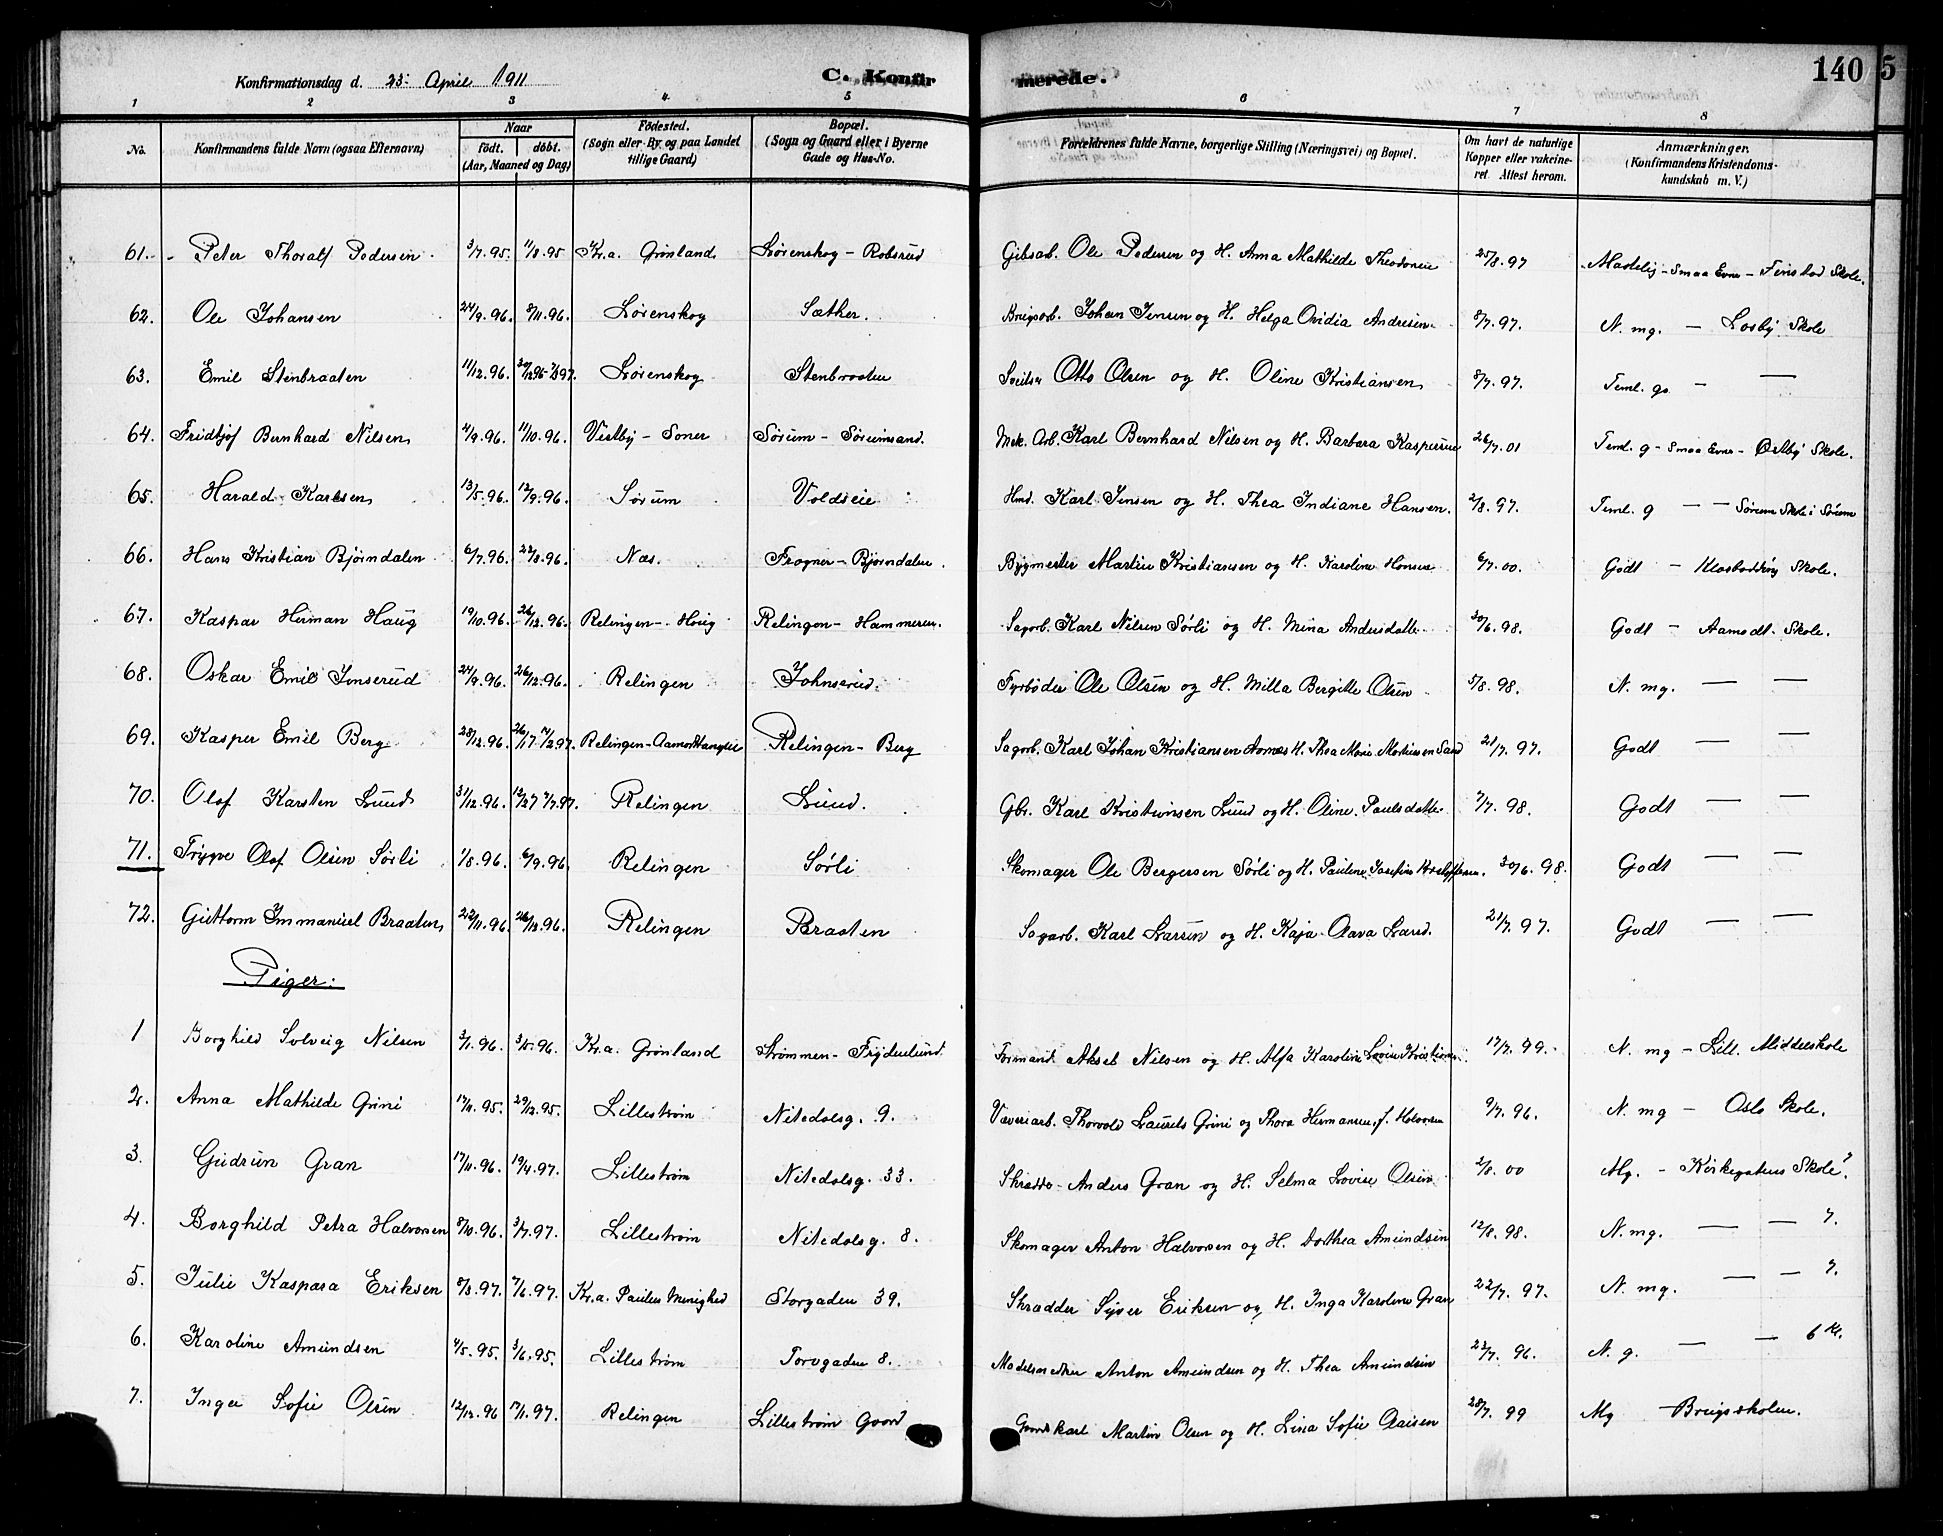 140 5
Konfirmationsdag d. 23: April 1911 C. Konfirmerede.
1 2 3 4. 5 6 7 8
No. Konfirmandens fulde Navn (ogsaa Efternavn) Naar født. døbt. (Aar, Maaned og Dag) Fødested. (Sogn eller By og paa Landet tillige Gaard) Bopæl. (Sogn og Gaard eller i Byerne Gade og Hus-No. Forældrenes fulde Navne, borgerlige Stilling (Næringsvei) og Bopæl. Om havt de naturlige Kopper eller vakcineret. Attest herom. Anmærkninger. (Konfirmandens Kristendomskundskab m. V.)
61. Peter Thoralf Pedersen 3/7.95. 11/8.95 Kr.a. Grønland Lørenskog - Robsrud Gibsarb. Ole Pedersen og H. Anna Mathilde 25/8.97 Madelij - Smaa Evner - Finstad Skole.
62. Ole Johansen 24/9.96. 8/11.96. Lørenskog Sæther. Brugsarb. Johan Jensen og H. Helga Ovidia Andresen 8/7.97. N. mg. - Losby Skole
63. Emil Stenbraaten 11/12.96. Lørenskog Stenbraaten Sveitser Otto Olsen og H. Oline Kristiansen 8/7.97. Teml. go - —
64. Fridtjof Bernhard Nilsen 4/9.96. 11/10.96. Vestby - Soner Sørum - Sørumsand. Mek. Arb. Karl Bernhard Nilsen og H. Barbara Kaspersen 26/7.01 Teml. g - Smaa Evner - Østby Skole.
65. Harald Karlsen 13/5.96. 12/9.96. Sørum Voldseie Hmd. Karl Jensen og H. Thea Indiane Hansen. 2/8.97. Teml. g — - Sørum Skole i Sørum
66. Hans Kristian Bjørndalen 6/7.96. 22/8.96. Næs. Frogner - Bjørndalen. Bygmester Martin Kristiansen og H. Karoline Hansen 6/7.00. Godt - Skole.
67. Kaspar Herman Haug 19/10.96. 26/12.96. Relingen - Haug Relingen - Hammeren. Sagarb. Karl Nilsen Sørli og H. Mina Andersdatter 30/6.98. Godt - Aamodt Skole.
68. Oskar Emil Jonserud 24/9.96. 26/12.96. Relingen Johnserud. Fyrbøder Ole Olsen og H. Milla Bergitte Olsen 5/8.98. N. mg. — —
69. Kasper Emil Berg 28/12.96. Relingen - Relingen - Berg Sagarb. Karl Johan Kristiansen Aarnes H. Thea Marie Mortensen Sand 21/7.97. Godt — —
70. Olaf Karsten Lund 31/12.96. Relingen Lund. Gbr. Karl Kristiansen Lund og H. Oline Paulsdatter 7/7.98. Godt — —
71. Trygve Olaf Olsen Sørli 1/8.96. 6/9.96. Relingen Sørli Skomager Ole Bergersen Sørli og H. Pauline Josefine 30/6.98. Godt — —
72. Guttorm Immanuel Braaten 22/11.96. 26/12.96. Relingen Braaten Sagarb. Karl Larsen og H. Kaja Olava 21/7.97. Godt — —
Piger:
1 Borghild Solveig Nilsen 2/1.96. 3/5.96. Kr.a. Grønland Strømmen - Frydenlund Formand Aksel Nilsen og H. Alfa Karoline Lovise 17/7.99. N. mg - Lill. Middelskole
2. Anna Mathilde Grini 17/11.95. 29/12.95. Lillestrøm Nitedalsg. 9. Væveriarb. Thorvald Laurits Grini og Thora Hermansen f. Halvorsen 9/7.96. N. mg - Oslo Skole.
3. Gudrun Gran 17/11.96. 19/4.97. Lillestrøm Nitedalsg. 33. Skrædder Anders Gran og H. Selma Lovise Olsen 2/8.00 Mg. - Kirkegatens Skole 7.
4. Borghild Petra Halvorsen 8/10.96. 3/7.97. Lillestrøm Nitedalsg. 8. Skomager Anton Halvorsen og H. Dorthea Amundsen 12/8.98. N. mg. — — 7.
5. Julie Kaspara Eriksen 8/3.97. 7/6.97. Kr.a. Paulus Menighed Storgaden 39. Skrædder Syver Eriksen og H. Inga Karoline Gran 22/7.97. N. mg. — — 7.
6. Karoline Amundsen 4/5.95. 3/6.95. Lillestrøm Torvgaden 8. Modelsnedker Anton Amundsen og H. Thea Amundsen 22/7.96. N. g. — — 6 Kl.
7. Inga Sofie Olsen 12/12.96 17/1.97. Relingen Lillestrøm Gaard Gaardskarl Martin Olsen og H. Lina Sofie Olaisen 28/7.99 Mg - Brugsskolen.